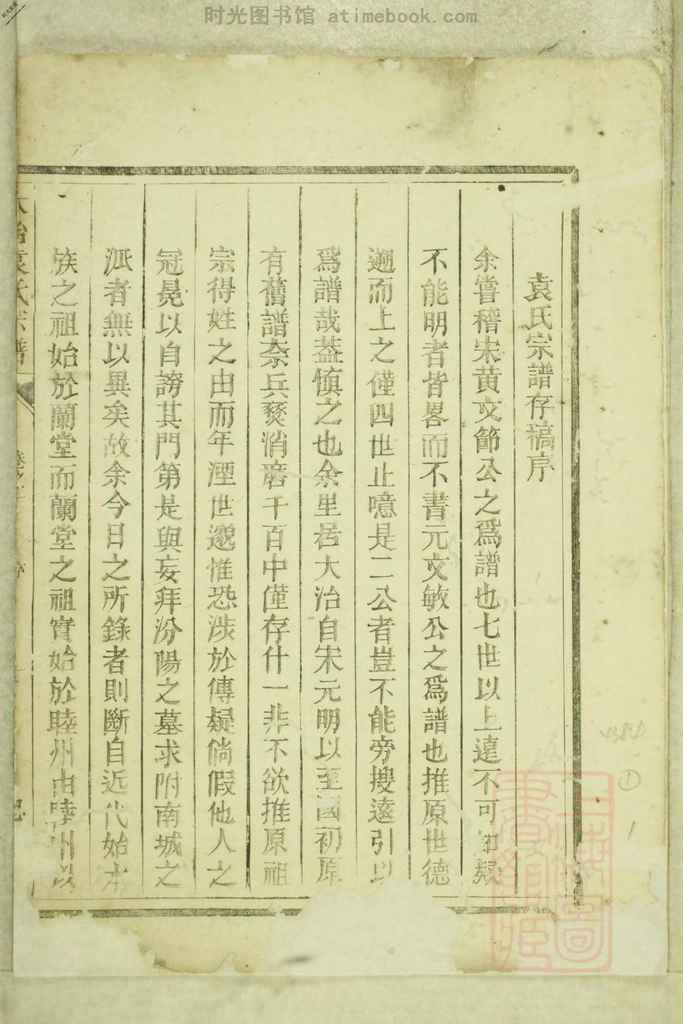 时光图书馆 atimebook.com
袁氏宗譜存稿序
余嘗稽宋黄文節公之爲譜也七世以上遠不可知疑
不能明者皆畧而不書元文敏公之爲譜也推原世德
遡而上之僅四世止噫是二公者豈不能旁搜遠引以
爲譜哉葢慎之也余里居大冶自宋元明以至國初原
有舊譜柰兵燹消磨千百中僅存什一非不欲推原祖
宗得姓之由而年湮世邈惟恐涉於傳疑倘假他人之
冠冕以自謗其門第是與妄拜汾陽之墓求附南城之
派者無以異矣故余今日之所錄者則斷自近代始本
族之祖始於蘭堂而蘭堂之祖實始於睦州由睦州以
袁氏宗譜